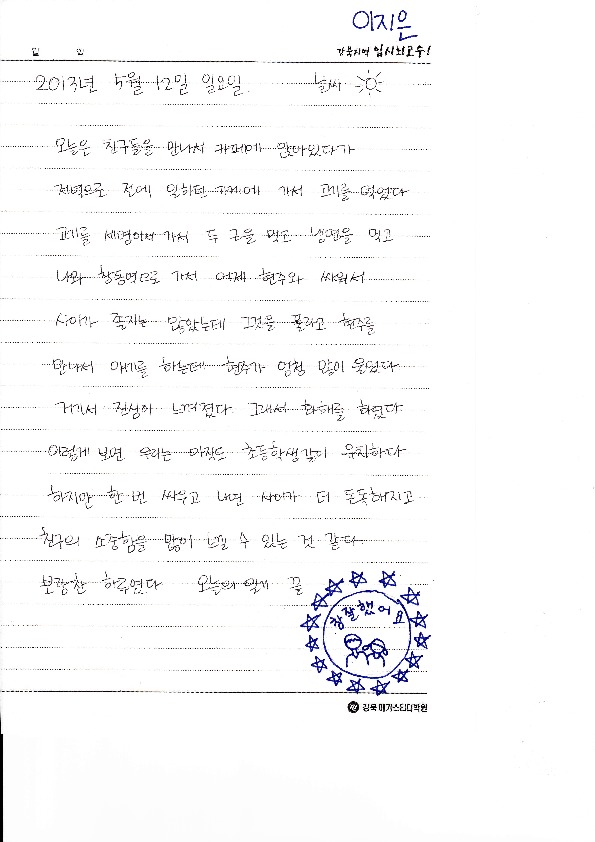 이지은
강북지역 입시의 고수!
월 일
2013년 5월 12일 일요일 날씨
오늘은 친구들을 만나서 카페에 앉아있다가
저녁으로 전에 일하던 가게에 가서 고기를 먹었다
고기를 세명이서 가서 두 근을 먹고 냉면을 먹고
나와 창동역으로 가서 어제 현주와 싸워서
사이가 좋지는 않았는데 그것을 풀라고 현주를
만나서 얘기를 하는데 현주가 엄청 많이 울었다
거기서 진심이 느껴졌다 그래서 화해를 하였다
이렇게 보면 우리는 아직도 초등학생같이 유치하다
하지만 한 번 싸우고 나면 사이가 더 돈독해지고
친구의 소중함을 많이 느낄 수 있는 것 같다
보람찬 하루였다 오늘의 일기 끝
참 잘했어요
강북 메가스터디학원